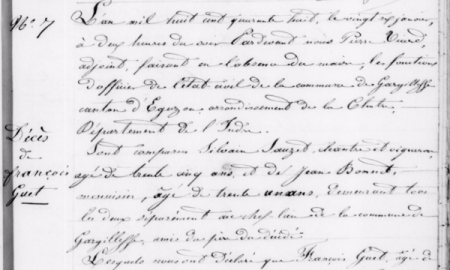 N°. 7
Décès
de
françois
Guet
L'an mil huit cent quarante huit, le vingt six janvier,
à deux heures du soir Pardevant nous Pierre
adjoint, faisant en l'absence du maire, les fonctions
d'officier de l'état civil de la commune de Gargilesse
canton d'Eguzon arrondissement de la Chatre,
Département de l'Indre.
Sont comparus Silvain Sauzet, chantre et vigneron,
agé de trente cinq ans, et de jean Bonnet,
agé de trente un ans, demeurant tous
les deux séparément au chef lieu de la commune de
Gargilesse, amis du père du décédé.
Lesquels nous ont déclaré que François Guet, agé de